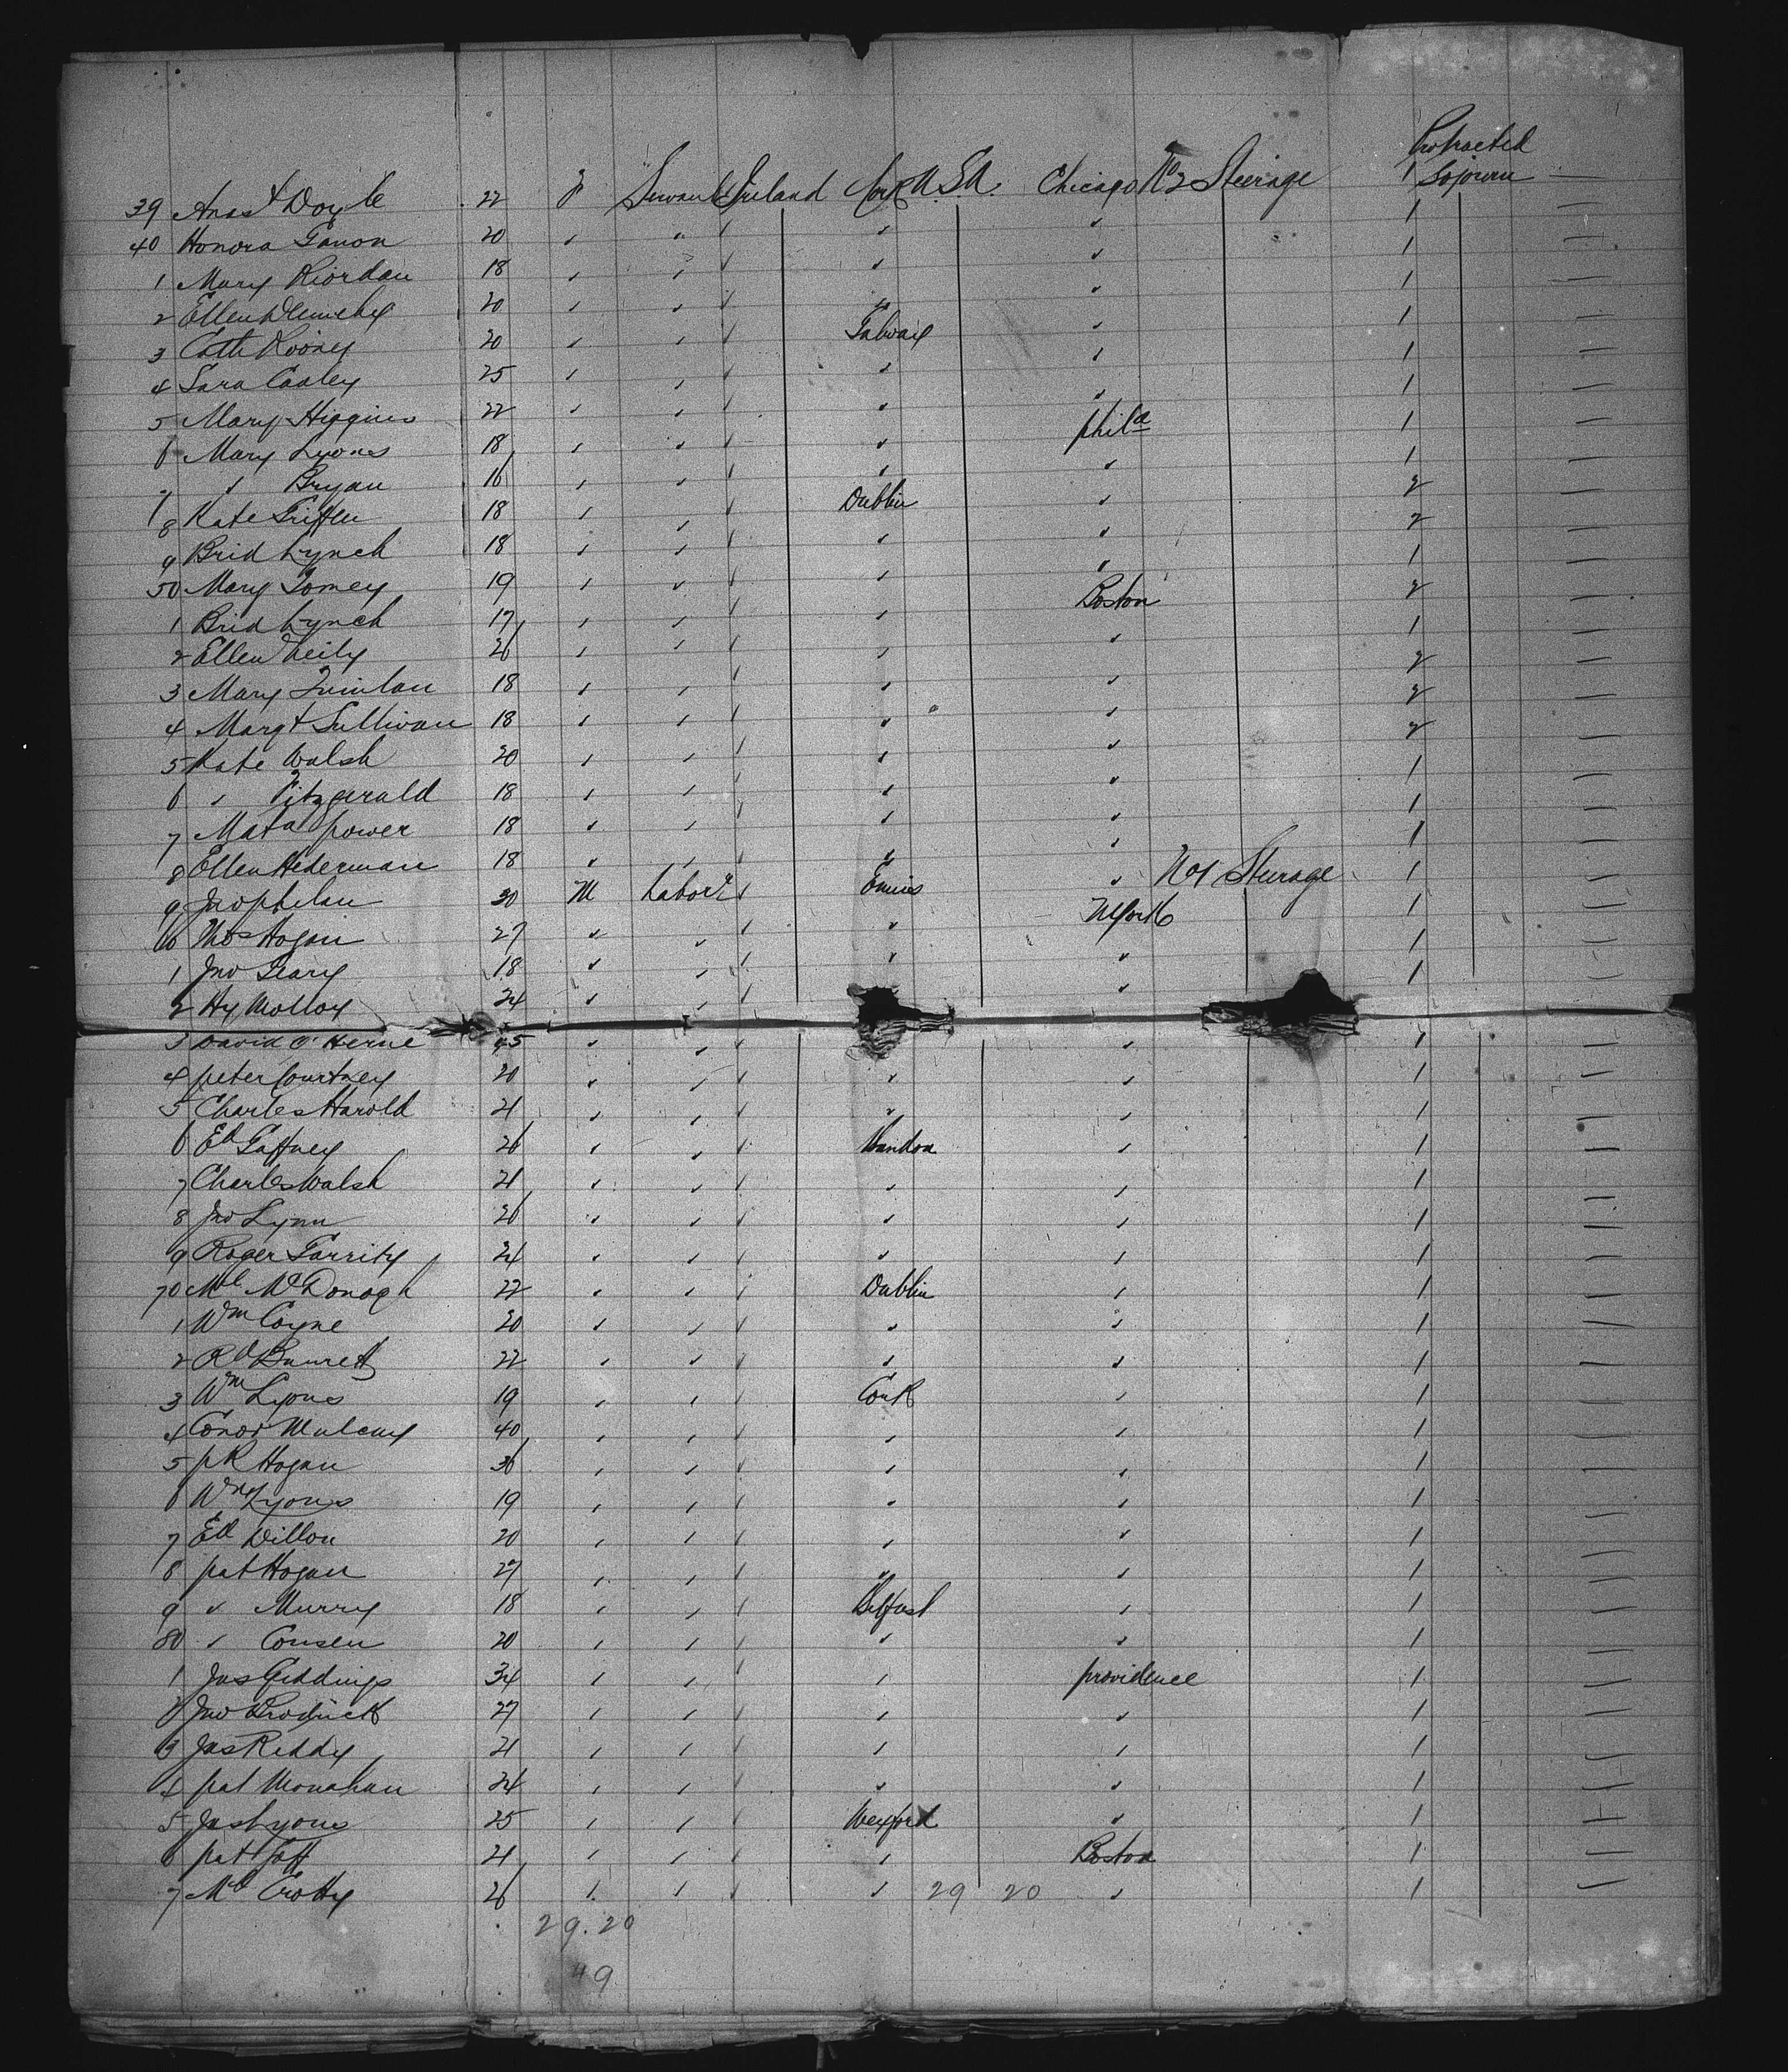 Protracted
39 Anast Doyle 22 F Servant Ireland Cork U.S.A. Chicago No 2 Steerage 1 Sojourn —
40 Honora Ganon 20 " " " " " 1 —
1 Mary Riordan 18 " " " " " 1 —
2 Ellen 20 " " " " " 1 —
3 Cath Rooney 20 " " " Galway " 1 —
4 Sara Cooley 25 " " " " " 1 —
5 Mary Higgins 22 " " " " " 1 —
6 Mary Lyons 18 " " " " phila 1 —
7 " Bryan 16 " " " " " 1 —
8 Kate Griffin 18 " " " Dublin " 2 —
9 Brid Lynch 18 " " " " " 2 —
50 Mary Tomey 19 " " " " " 1 —
1 Brid Lynch 17 " " " " Boston 2 —
2 Ellen Neily 26 " " " " " 1 —
3 Mary Quinlan 18 " " " " " 2 —
4 Margt Sullivan 18 " " " " " 2 —
5 Kate Walsh 20 " " " " " 2 —
6 " Fitzgerald 18 " " " " " 1 —
7 Mata power 18 " " " " " 1 —
8 Ellen Hederman 18 " " " " " 1 —
9 Jno phelan 30 M Laborr " Ennis " No 1 Steerage 1 —
60 Thos Hogan 27 " " " " N York 1 —
1 Jno Geary 18 " " " " " 1 —
2 Hy Molloy 24 " " " " 1 —
3 David O'Herne 45 " " " 1 —
4 peter Courtney 20 " " " " " 1 —
5 Charles Harold 21 " " " " " 1 —
6 Ed Gaffney 26 " " " Bandon " 1 —
7 Charles Walsh 21 " " " " " 1 —
8 Jno Lynn 26 " " " " " 1 —
9 Roger Garrity 24 " " " " " 1 —
70 Ml McDonogh 22 " " " Dublin " 1 —
1 Wm Coyne 20 " " " " " 1 —
2 Rd 22 " " " " " 1 —
3 Wm Lyons 19 " " " Cork " 1 —
4 Conor Mulcay 40 " " " " " 1 —
5 pk Hogan 36 " " " " " 1 —
6 Wm Lyons 19 " " " " " 1 —
7 Ed Dillon 20 " " " " " 1 —
8 pat Hogan 27 " " " " " 1 —
9 " Murry 18 " " " Belfast " 1 —
80 " Consen 20 " " " " " 1 —
1 Jas Giddings 34 " " " " providence 1 —
2 Jno Brodrick 27 " " " " " 1 —
3 Jas Reddy 21 " " " " " 1 —
4 pat Monahan 24 " " " " " 1 —
5 Jas Lyons 25 " " " Wexford " 1 —
6 pat Goff 21 " " " " Boston 1 —
7 Ml Crotty 26 " " " " 29 20 " 1 —
29.20
49